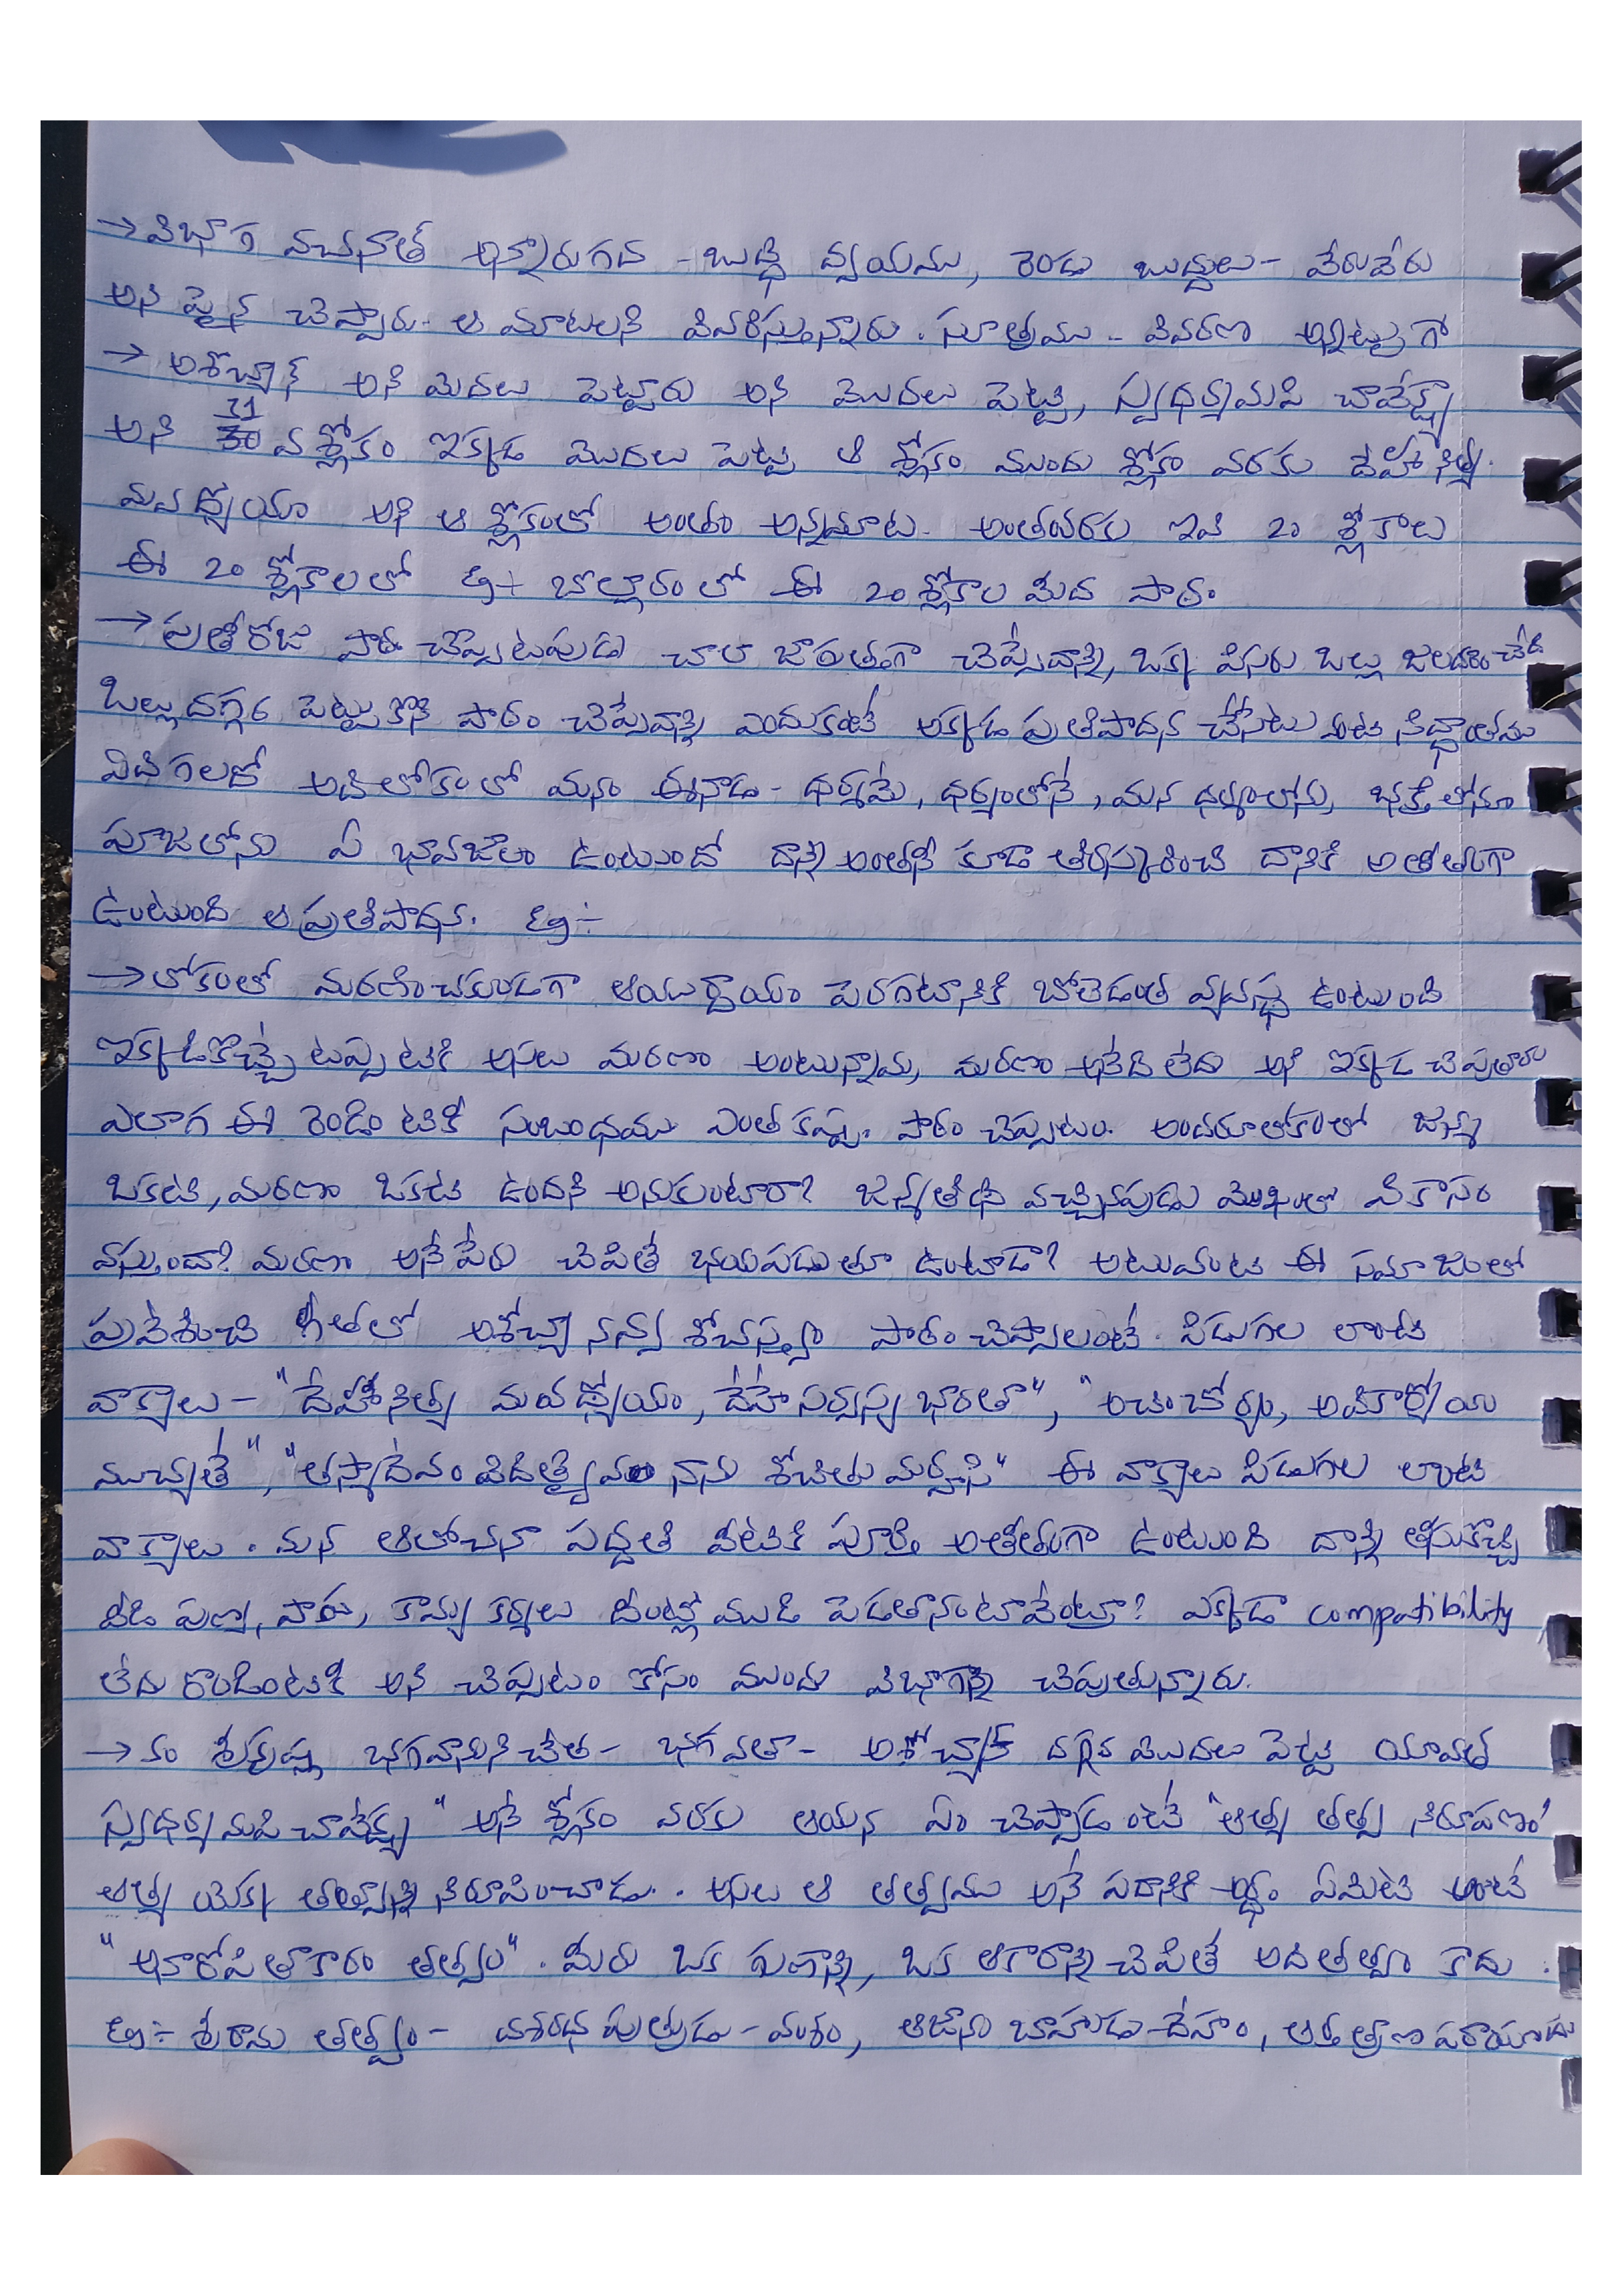 → విభాగ వచనాత్ అన్నారుగద - బుద్ధి ద్వయము, రెండు బుద్ధులు - వేరువేరు
అని పైన చెప్పారు. ఆ మాటలని వివరిస్తున్నారు. సూత్రము - వివరణ అన్నట్టుగా
→ అశోచ్యాన్ అని మొదలు పెట్టారు అని మొదలు పెట్టి, స్వధర్మమపి చావేక్ష్య
అని 31 వ శ్లోకం ఇక్కడ మొదలు పెట్టి ఆ శ్లోకం ముందు శ్లోకం వరకు దేహీ నిత్య
మవధ్యోయా అని ఆ శ్లోకంలో అంతం అన్నమాట. అంతవరకు ఇవి 20 శ్లోకాలు
ఈ 20 శ్లోకాలలో Eg:- బొల్లారంలో ఈ 20 శ్లోకాల మీద పాఠం
→ ప్రతీరోజు పాఠం చెప్పేటపుడు చాలా జాగ్రత్తగా చెప్పేవాన్ని, ఒక్క పిసరు ఒల్లు జలదరించేది
ఒల్లు దగ్గర పెట్టుకొని పాఠం చెప్పేవాన్ని ఎందుకంటే అక్కడ ప్రతిపాదన చేసేటువంటి సిద్ధాంతము
ఏది గలదో అది లోకంలో మనం ఈనాడు - ధర్మమే, ధర్మంలోనే, మన ధర్మంలోను, భక్తిలోనూ
పూజలోను ఏ భావజాలం ఉంటుందో దాన్ని అంతటినీ కూడా తిరస్కరించి దానికి అతీతంగా
ఉంటుంది ఆ ప్రతిపాదన. Eg:-
→ లోకంలో మరణించకుండగా ఆయుర్దాయం పెరగటానికి బోలెడంత వ్యవస్థ ఉంటుంది
ఇక్కడికొచ్చేటప్పటికి అసలు మరణం అంటున్నామ, మరణం అనేది లేదు అని ఇక్కడ చెపుతారు
ఎలాగ ఈ రెండింటికి సంబంధము ఎంత కష్టం. పాఠం చెప్పటం. అందరూ లోకంలో జన్మ
ఒకటి, మరణం ఒకటి ఉందని అనుకుంటారా? జన్మతిథి వచ్చినపుడు మొఖంలో వికాసం
వస్తుందా? మరణం అనే పేరు చెపితే భయపడుతూ ఉంటాడా? అటువంటి ఈ సమాజంలో
ప్రవేశించి గీతలో అశోచ్యానన్వశోచస్త్వం పాఠం చెప్పాలంటే. పిడుగుల లాంటి
వాక్యాలు - "దేహీ నిత్య మవధ్యోయం, దేహే సర్వస్య భారతా", "అచింత్యోయం, అవికార్యోయ
ముచ్యతే", "తస్మాదేవం విదిత్వైనం నాను శోచితు మర్హసి" ఈ వాక్యాలు పిడుగుల లాంటి
వాక్యాలు. మన ఆలోచనా పద్ధతి వీటికి పూర్తి అతీతంగా ఉంటుంది దాన్ని తీసుకొచ్చి
వీడి పుణ్య, పాప, కామ్య కర్మలు దీంట్లో ముడి పెడతానంటావేంట్రా? ఎక్కడా compatibility
లేదు రెండింటికి అని చెప్పటం కోసం ముందు విభాగాన్ని చెపుతున్నారు.
→ కం శ్రీకృష్ణ భగవానుని చేత - భగవతా - అశోచ్యాన్ దగ్గర మొదలు పెట్టి యావత్
స్వధర్మ మపి చావేక్ష్య" అనే శ్లోకం వరకు ఆయన ఏం చెప్పాడంటే "ఆత్మ తత్వ నిరూపణం"
ఆత్మ యొక్క తత్వాన్ని నిరూపించాడు.. అసలు ఆ తత్వము అనే పదానికి అర్థం ఏమిటి అంటే
"అనారోపితాకారం తత్వం". మీరు ఒక గుణాన్ని, ఒక ఆకారాన్ని చెపితే అది తత్వం కాదు.
Eg:- శ్రీరామ తత్త్వం - దశరథ పుత్రుడు - వంశం, ఆజాను బాహుడు - దేహం, ఆర్త త్రాణ పరాయణుడు